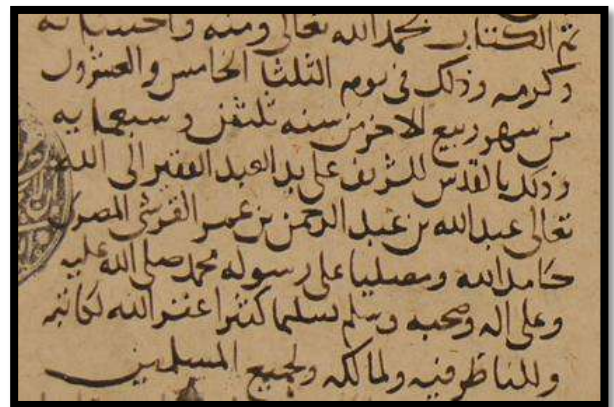 تم الكتاب بحمد الله تعالى ومنه واحسانه
وكرمه وذلك فى يوم الثلثا الخامس والعشرون
من شهر ربيع الاخر من سنه ثلثين وسبعمايه
وذلك بالقدس الشريف على يد العبد الفقير الى الله
تعالى عبد الله بن عبد الرحمن بن عمر القرشى المصرى
حامدا لله ومصليا على رسوله محمد صلى الله عليه
وعلى اله وصحبه وسلم تسليما كثيرا غفر الله لكاتبه
وللناظر فيه ولمالكه ولجميع المسلمين